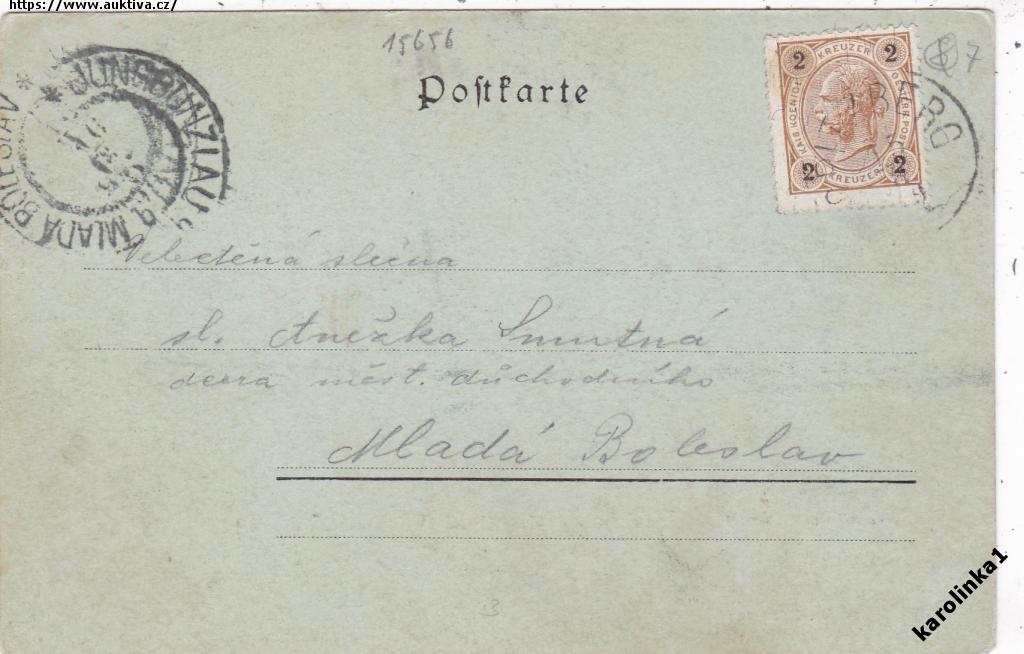 https://www.auktiva.cz/
15656
Postkarte
7
2 KREUZER 2
KAIS. KOENIGL. OESTERR. POST
2 KREUZER 2
BERG
JUNGBUNZLAU
MLADÁ BOLESLAV
Velectěná slečna
sl. Anežka Smutná
dcera měst. důchodního
Mladá Boleslav
3
karolinka1